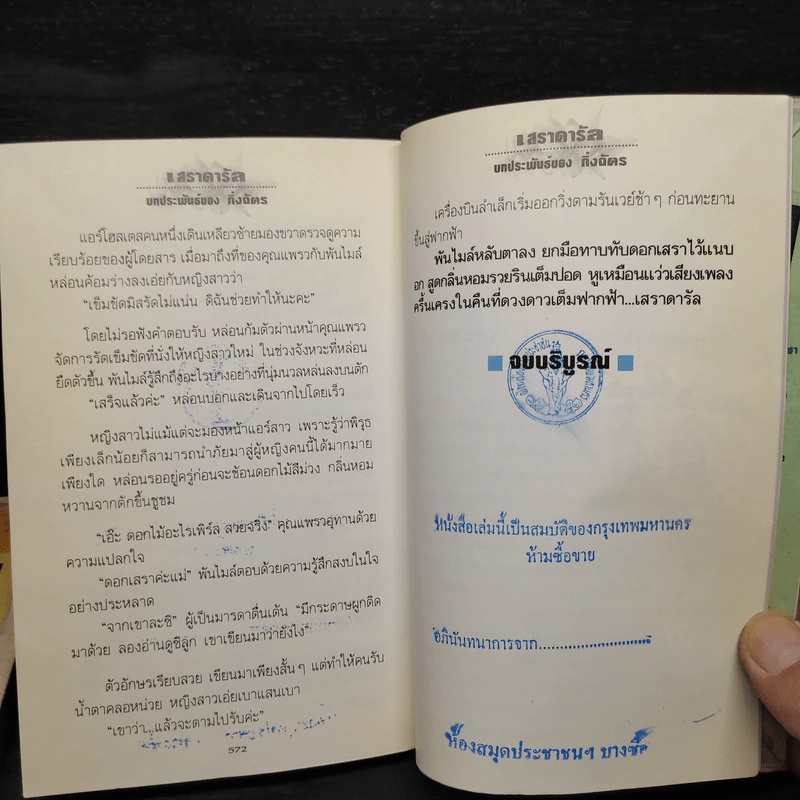 เสราดารัล
บทประพันธ์ของ กิ่งฉัตร
แอร์โฮสเตสคนหนึ่งเดินเหลียวซ้ายมองขวาตรวจดูความ
เรียบร้อยของผู้โดยสาร เมื่อมาถึงที่ของคุณแพรวกับพันไมล์
หล่อนค้อมร่างลงเอ่ยกับหญิงสาวว่า
“เข็มขัดมิสรัดไม่แน่น ดิฉันช่วยทำให้นะคะ”
โดยไม่รอฟังคำตอบรับ หล่อนก้มตัวผ่านหน้าคุณแพรว
จัดการรัดเข็มขัดที่นั่งให้หญิงสาวใหม่ ในช่วงจังหวะที่หล่อน
ยืดตัวขึ้น พันไมล์รู้สึกถึงอะไรบางอย่างที่นุ่มนวลหล่นลงบนตัก
“เสร็จแล้วค่ะ” หล่อนบอกและเดินจากไปโดยเร็ว
หญิงสาวไม่แม้แต่จะมองหน้าแอร์สาว เพราะรู้ว่าพิรุธ
เพียงเล็กน้อยก็สามารถนำภัยมาสู่ผู้หญิงคนนี้ได้มากมาย
เพียงใด หล่อนรออยู่ครู่ก่อนจะช้อนดอกไม้สีม่วง กลิ่นหอม
หวานจากตักขึ้นชูชม
“เอ๊ะ ดอกไม้อะไรเพิร์ล สวยจริง” คุณแพรวอุทานด้วย
ความแปลกใจ
“ดอกเสราค่ะแม่” พันไมล์ตอบด้วยความรู้สึกสงบในใจ
อย่างประหลาด
“จากเขาละซิ” ผู้เป็นมารดาตื่นเต้น “มีกระดาษผูกติด
มาด้วย ลองอ่านดูซิลูก เขาเขียนมาว่ายังไง”
ตัวอักษรเรียบสวย เขียนมาเพียงสั้นๆ แต่ทำให้คนรับ
น้ำตาคลอหน่วย หญิงสาวเอ่ยเบาแสนเบา
“เขาว่า...แล้วจะตามไปรับค่ะ”
572
เสราดารัล
บทประพันธ์ของ กิ่งฉัตร
เครื่องบินลำเล็กเริ่มออกวิ่งตามรันเวย์ช้าๆ ก่อนทะยาน
ขึ้นสู่ฟากฟ้า
พันไมล์หลับตาลง ยกมือทาบทับดอกเสราไว้แนบ
อก สูดกลิ่นหอมรวยรินเต็มปอด หูเหมือนแว่วเสียงเพลง
ครื้นเครงในคืนที่ดวงดาวเต็มฟากฟ้า...เสราดารัล
จบบริบูรณ์
หนังสือเล่มนี้เป็นสมบัติของกรุงเทพมหานคร
ห้ามซื้อขาย
อภินันทนาการจาก........................
ห้องสมุดประชาชนฯ บางซื่อ